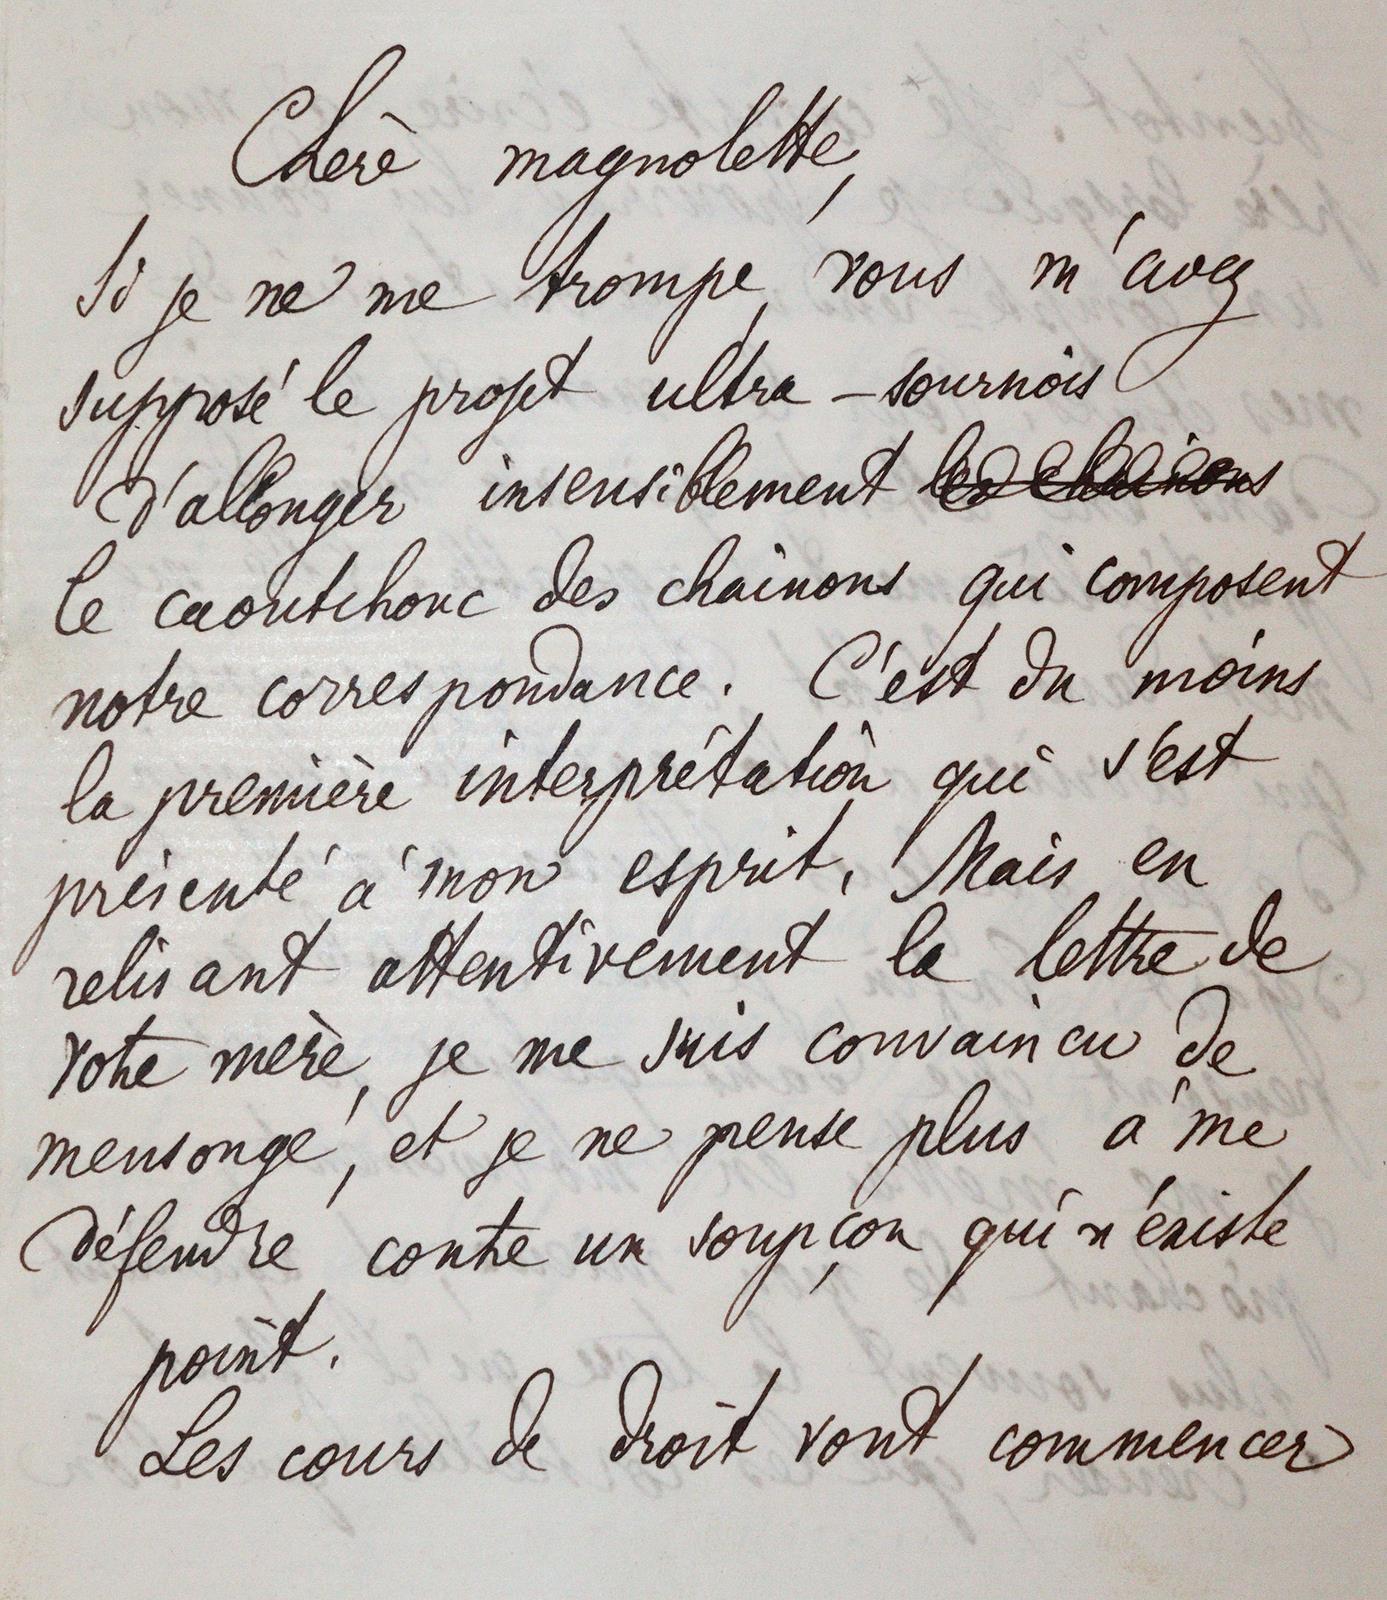 Chère magnolette,
Si je ne me trompe, vous m'avez
supposé le projet ultra-sournois
d'allonger insensiblement les chainons
le caoutchouc des chainons qui composent
notre correspondance. C'est du moins
la première interprétation qui s'est
présenté à mon esprit, Mais en
relisant attentivement la lettre de
votre mère, je me suis convaincu de
mensonge, et je ne pense plus à me
défendre contre un soupçon qui n'existe
point.
Les cours de droit vont commencer